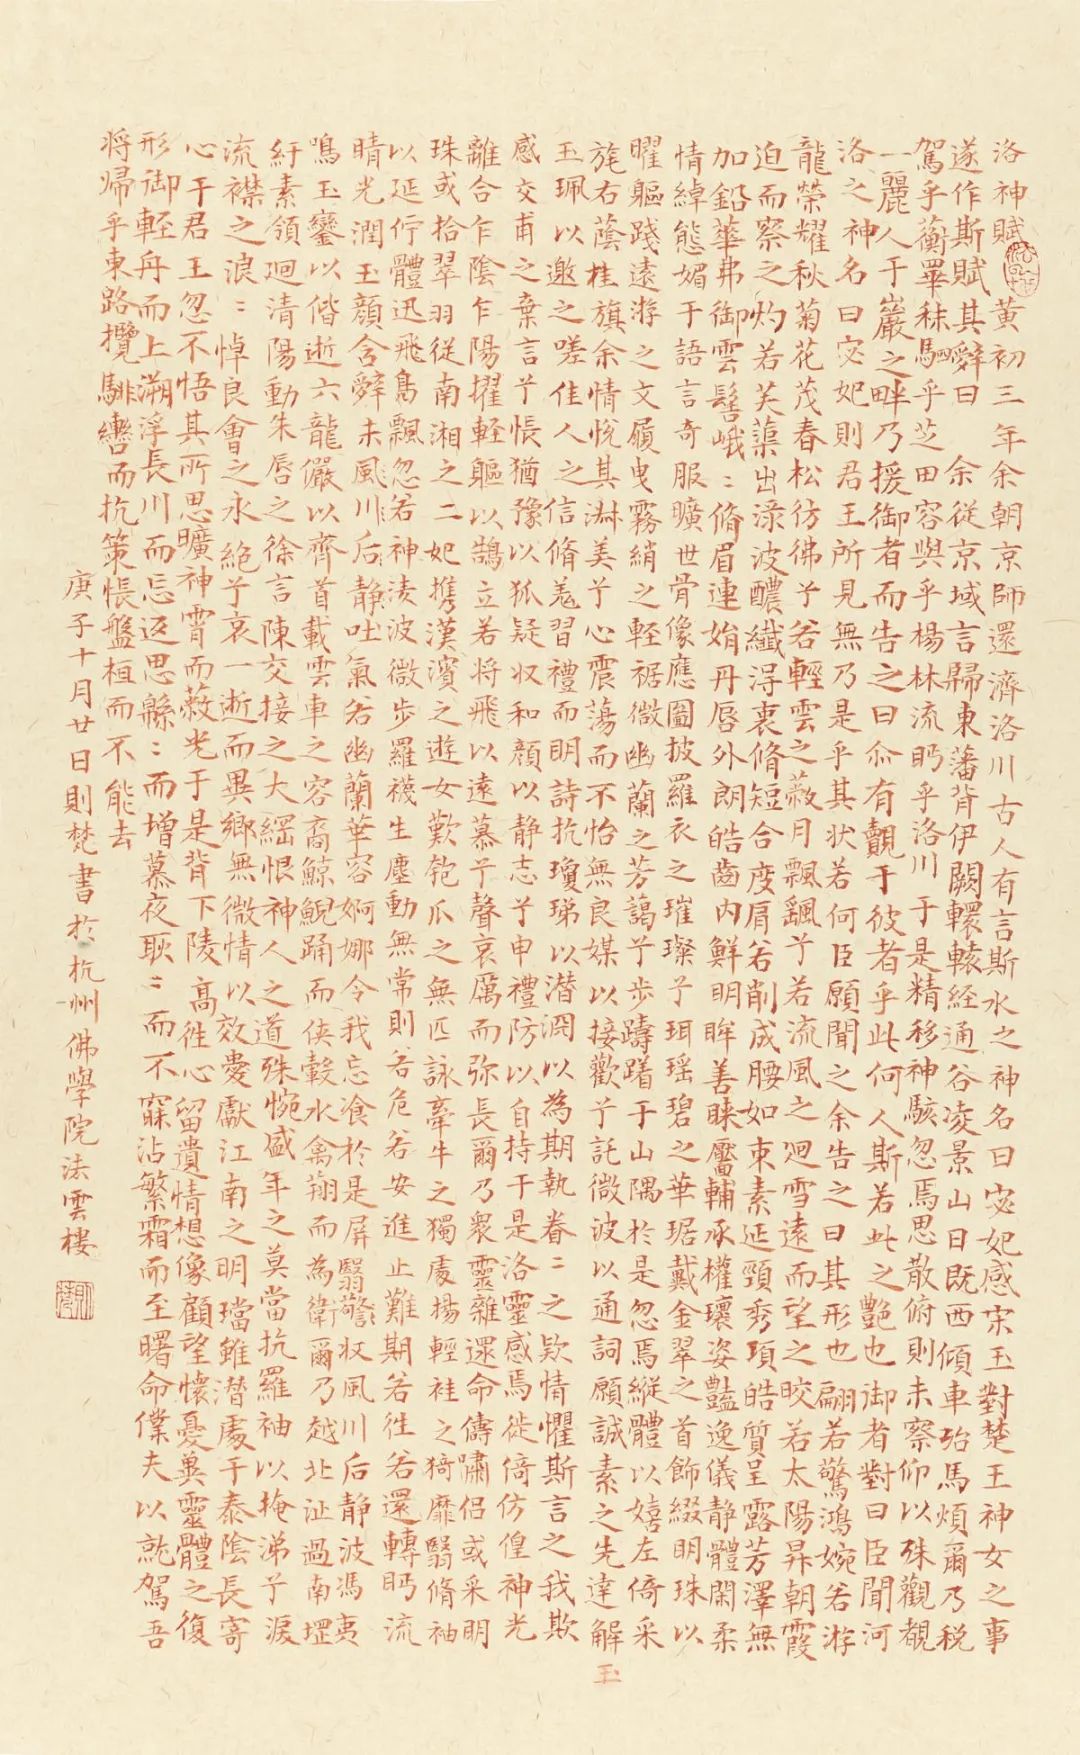 洛神賦 黃初三年余朝京師還濟洛川古人有言斯水之神名曰宓妃感宋玉對楚王神女之事
遂作斯賦其辭曰 余從京域言歸東藩背伊闕轘轅經通谷淩景山日既西傾車殆馬煩爾乃稅
駕乎蘅皋秣駟乎芝田容與乎楊林流眄乎洛川于是精移神駭忽焉思散俯則未察仰以殊觀覩
一麗人于巖之畔乃援御者而告之曰尒有覿于彼者乎此何人斯若此之艷也御者對曰臣聞河
洛之神名曰宓妃則君王所見無乃是乎其狀若何臣願聞之余告之曰其形也翩若驚鴻婉若游
龍榮耀秋菊花茂春松彷彿兮若輕雲之蔽月飄颻兮若流風之迴雪遠而望之皎若太陽昇朝霞
迫而察之灼若芙蕖出淥波醲纖得衷脩短合度肩若削成腰如束素延頸秀項皓質呈露芳澤無
加鉛華弗御雲髻峨〻脩眉連娟丹唇外朗皓齒內鮮明眸善睞靨輔承權瓌姿豔逸儀靜體閑柔
情綽態媚于語言奇服曠世骨像應圖披羅衣之璀璨兮珥瑶碧之華琚戴金翠之首飾綴明珠以
曜軀踐遠游之文履曳霧綃之輕裾微幽蘭之芳藹兮步躊躇于山隅於是忽焉縱體以嬉左倚采
旄右蔭桂旗余情悅其淋美兮心震蕩而不怡無良媒以接歡兮託微波以通詞願誠素之先達解
玉珮以邀之嗟佳人之信脩羌習禮而明詩抗瓊珶以潛淵以為期執眷〻之欵情懼斯言之我欺
感交甫之棄言兮悵猶豫以狐疑収和顏以静志兮申禮防以自持于是洛靈感焉徙倚仿偟神光
離合乍陰乍陽擢輕軀以鵠立若將飛以遠慕兮聲哀厲而弥長爾乃衆靈雜遝命儔嘯侶或采明
珠或拾翠羽從南湘之二妃携漢濱之遊女歎匏瓜之無匹詠牽牛之獨處揚輕袿之猗靡翳脩袖
以延佇體迅飛鳧飄忽若神淩波微步羅襪生塵動無常則若危若安進止難期若往若還轉眄流
睛光潤玉顏含辭未風川后静吐氣若幽蘭華容婀娜令我忘飡於是屏翳警収風川后静波馮夷
鳴玉鑾以偕逝六龍儼以齊首載雲車之容裔鯨鯢踊而侠轂水禽翔而為衛爾乃越北沚過南堽
紆素領迴清陽動朱唇之徐言陳交接之大綱恨神人之道殊惋盛年之莫當抗羅袖以掩涕兮淚
流襟之浪〻悼良會之永絕兮哀一逝而異鄉無微情以效愛獻江南之明璫雖潛處于泰陰長寄
心于君王忽不悟其所思曠神霄而蔽光于是背下陵高往心留遺情想像顧望懷憂冀靈體之復
形御輕舟而上溯浮長川而忘返思緜〻而增慕夜耿〻而不寐沾繁霜而至曙命僕夫以就駕吾
將歸乎東路攬騑轡而抗策悵盤桓而不能去
庚子十月廿日則梵書於杭州佛學院法雲樓
玉